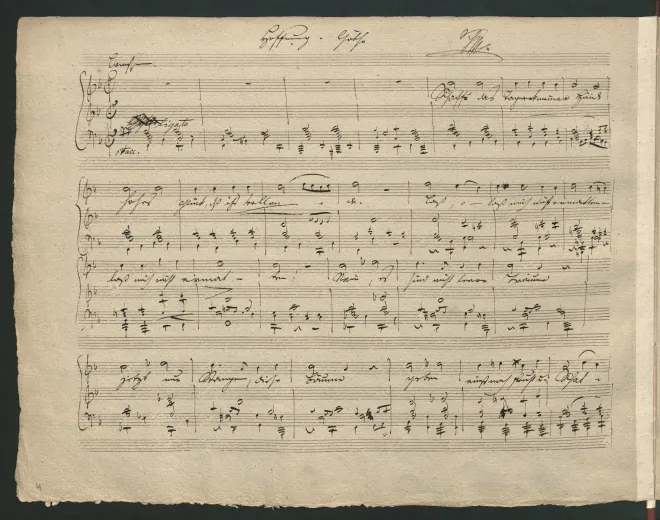 Hoffnung. Göthe
Schaff, das Tagwerk meiner Händ
hohes Glück, daß ich's vollen - de. Laß, o laß mich nicht ermatten
laß mich nicht ermat - ten! Nein, es sind nicht leere Träume
jetzt nur Stangen, diese Bäume geben einst noch Frucht u. Schat -